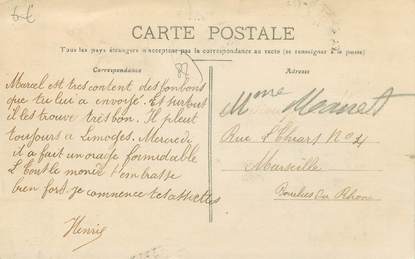 CARTE POSTALE
Tous les pays étrangers n'acceptent pas la correspondance au recto (se renseigner à la poste)
Correspondance
Adresse
Marcel est très content des bonbons
que tu lui a envoyé. Et surtout
il les trouve très bon. Il pleut
toujours a Limoges. Mercredi
il a fait un orage formidable
tout le monde t'embrasse
bien fort. je commence tes assiettes
Henri
Mme
Rue No 4
Marseille
Bouches Du Rhône